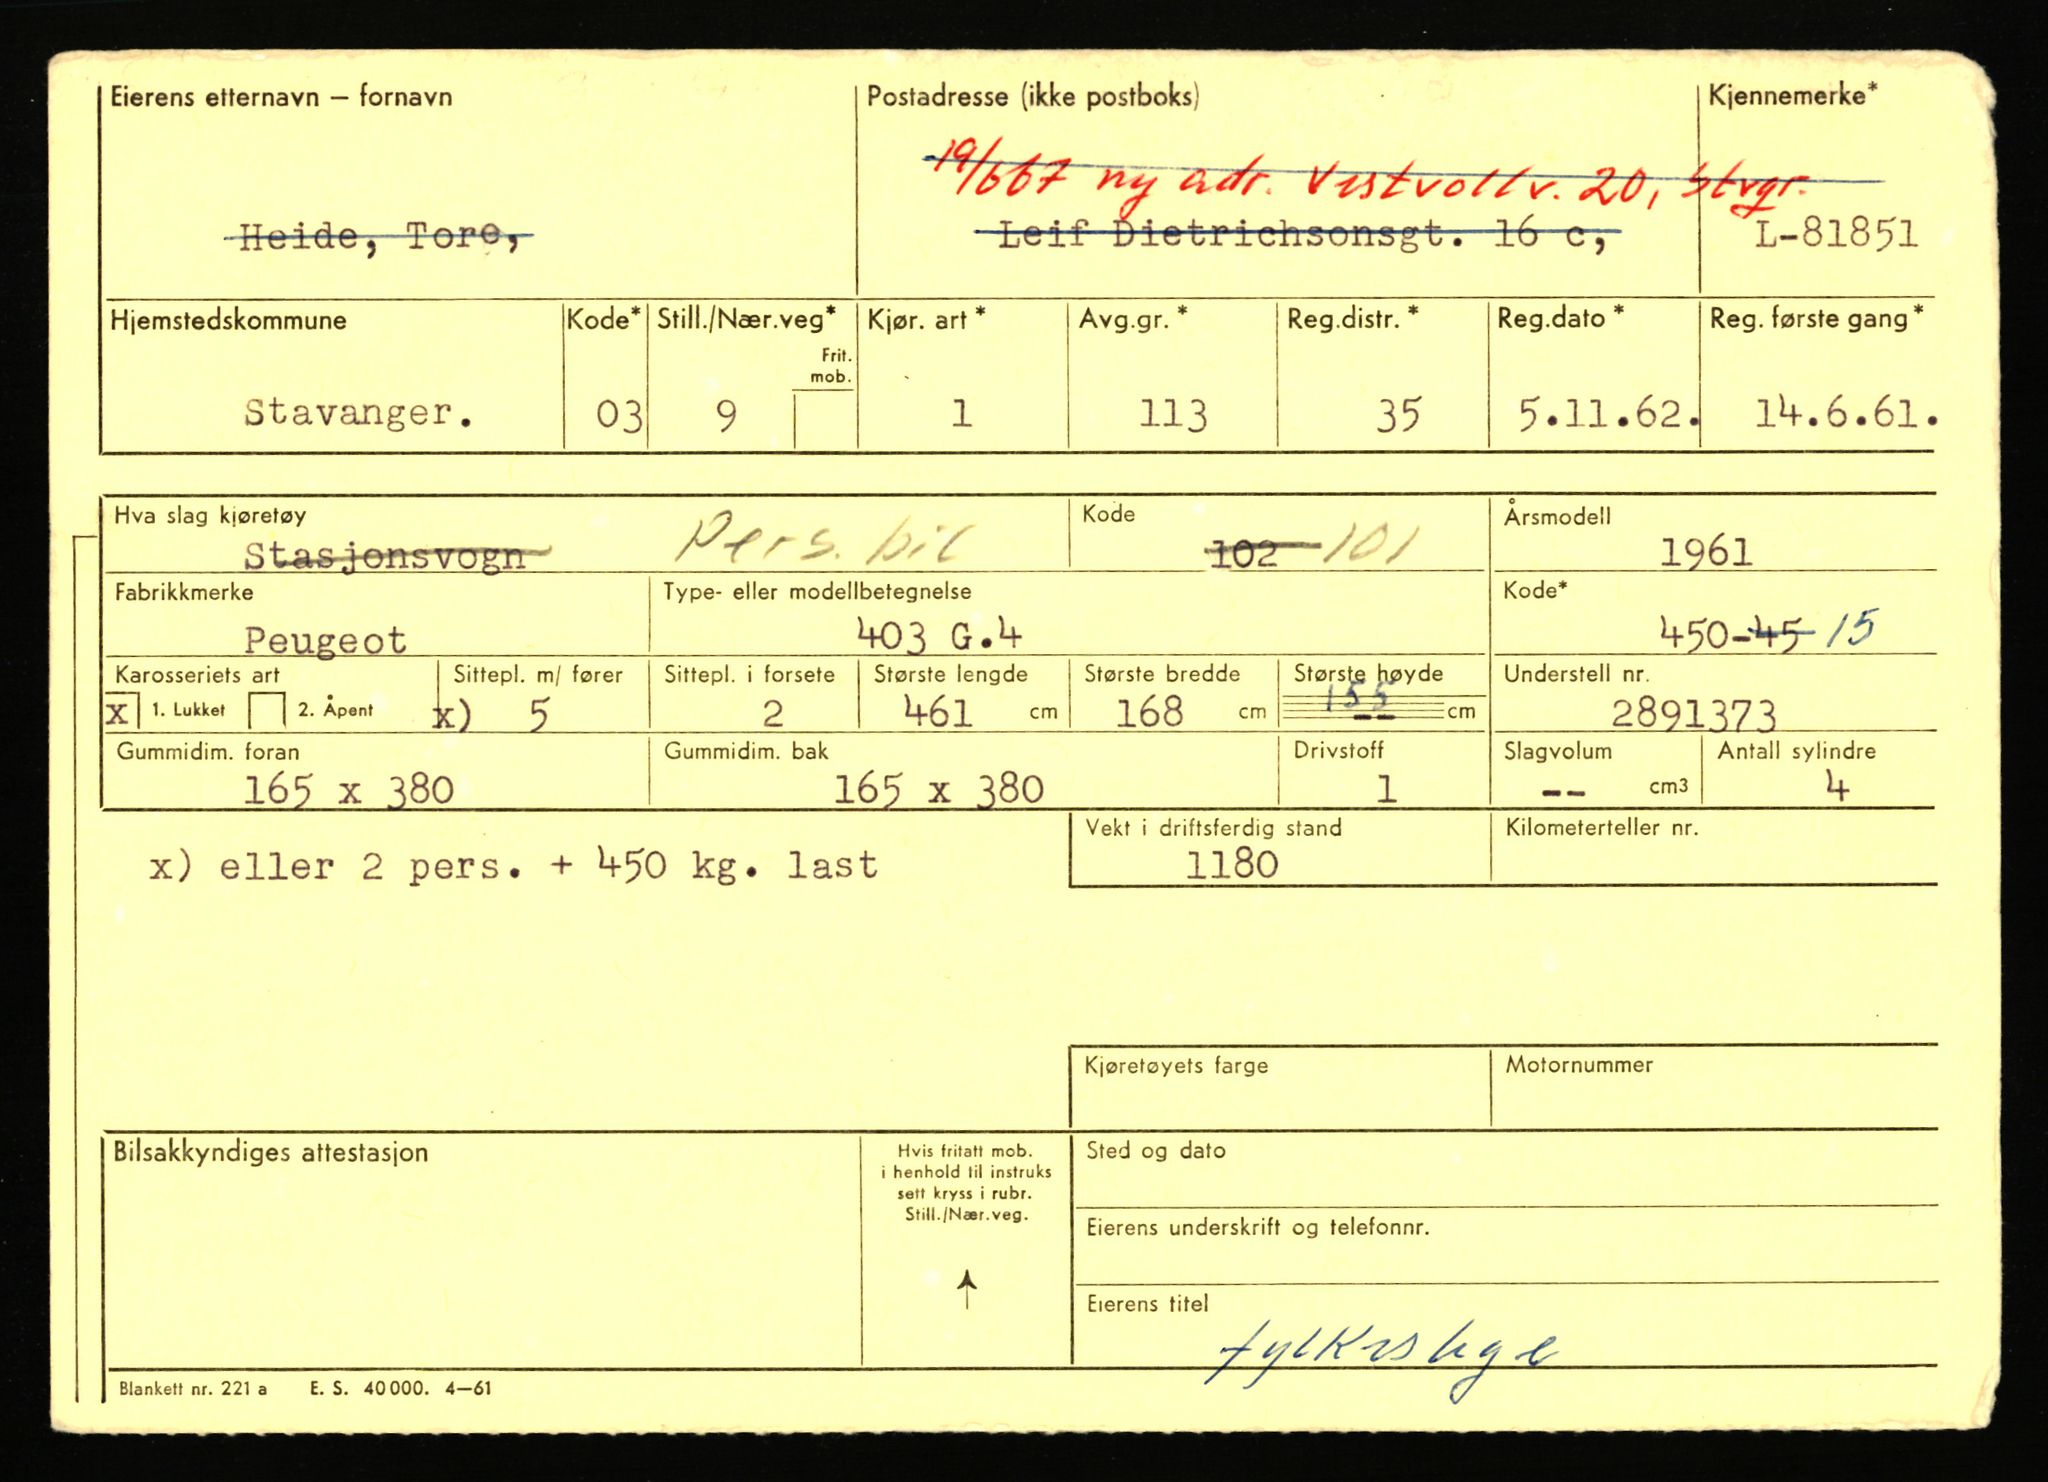 Eierens etternavn – fornavn Postadresse (ikke postboks) Kjennemerke*
19/667 ny adr. Vestvollv. 20, Stvgr.
Heide, Tore, Leif Dietrichsonsgt. 16 c, L-81851
Hjemstedskommune Kode* Still./Nær.veg* Kjør. art* Avg.gr.* Reg.distr.* Reg.dato* Reg. første gang*
Frit.
mob.
Stavanger. 03 9 1 113 35 5.11.62. 14.6.61.
Hva slag kjøretøy Kode Årsmodell
Stasjonsvogn Pers. bil 102 101 1961
Fabrikkmerke Type- eller modellbetegnelse Kode*
Peugeot 403 G.4 450-45 15
Karosseriets art Sittepl. m/ fører Sittepl. i forsete Største lengde Største bredde Største høyde Understell nr.
155
x 1. Lukket 2. Åpent x) 5 2 461 cm 168 cm -- cm 2891373
Gummidim. foran Gummidim. bak Drivstoff Slagvolum Antall sylindre
165 x 380 165 x 380 1 -- cm3 4
Vekt i driftsferdig stand Kilometerteller nr.
x) eller 2 pers. + 450 kg. last 1180
Kjøretøyets farge Motornummer
Bilsakkyndiges attestasjon Hvis fritatt mob. Sted og dato
i henhold til instruks
sett kryss i rubr.
Still./Nær.veg.
Eierens underskrift og telefonnr.
Eierens titel
Blankett nr. 221 a E. S. 40 000. 4—61